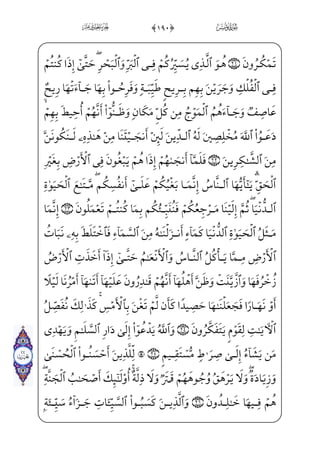 ﴿١٩٠﴾
تَمْكُرُونَ ۝٢١ هُوَ ٱلَّذِى يُسَيِّرُكُمْ فِى ٱلْبَرِّ وَٱلْبَحْرِ ۖ حَتَّىٰٓ إِذَا كُنتُمْ
فِى ٱلْفُلْكِ وَجَرَيْنَ بِهِم بِرِيحٍ طَيِّبَةٍ وَفَرِحُوا۟ بِهَا جَآءَتْهَا رِيحٌ
عَاصِفٌ وَجَآءَهُمُ ٱلْمَوْجُ مِن كُلِّ مَكَانٍ وَظَنُّوٓا۟ أَنَّهُمْ أُحِيطَ بِهِمْ ۙ
دَعَوُا۟ ٱللَّهَ مُخْلِصِينَ لَهُ ٱلدِّينَ لَئِنْ أَنجَيْتَنَا مِنْ هَٰذِهِۦ لَنَكُونَنَّ
مِنَ ٱلشَّٰكِرِينَ ۝٢٢ فَلَمَّآ أَنجَىٰهُمْ إِذَا هُمْ يَبْغُونَ فِى ٱلْأَرْضِ بِغَيْرِ
ٱلْحَقِّ ۗ يَٰٓأَيُّهَا ٱلنَّاسُ إِنَّمَا بَغْيُكُمْ عَلَىٰٓ أَنفُسِكُم ۖ مَّتَٰعَ ٱلْحَيَوٰةِ
ٱلدُّنْيَا ۖ ثُمَّ إِلَيْنَا مَرْجِعُكُمْ فَنُنَبِّئُكُم بِمَا كُنتُمْ تَعْمَلُونَ ۝٢٣ إِنَّمَا
مَثَلُ ٱلْحَيَوٰةِ ٱلدُّنْيَا كَمَآءٍ أَنزَلْنَٰهُ مِنَ ٱلسَّمَآءِ فَٱخْتَلَطَ بِهِۦ نَبَاتُ
ٱلْأَرْضِ مِمَّا يَأْكُلُ ٱلنَّاسُ وَٱلْأَنْعَٰمُ حَتَّىٰٓ إِذَآ أَخَذَتِ ٱلْأَرْضُ
زُخْرُفَهَا وَٱزَّيَّنَتْ وَظَنَّ أَهْلُهَآ أَنَّهُمْ قَٰدِرُونَ عَلَيْهَآ أَتَىٰهَآ أَمْرُنَا لَيْلًا
أَوْ نَهَارًا فَجَعَلْنَٰهَا حَصِيدًا كَأَن لَّمْ تَغْنَ بِٱلْأَمْسِ ۚ كَذَٰلِكَ نُفَصِّلُ
ٱلْءَايَٰتِ لِقَوْمٍ يَتَفَكَّرُونَ ۝٢٤ وَٱللَّهُ يَدْعُوٓا۟ إِلَىٰ دَارِ ٱلسَّلَٰمِ وَيَهْدِى
مَن يَشَآءُ إِلَىٰ صِرَٰطٍ مُّسْتَقِيمٍ ۝٢٥ ۞ لِّلَّذِينَ أَحْسَنُوا۟ ٱلْحُسْنَىٰ
وَزِيَادَةٌ ۖ وَلَا يَرْهَقُ وُجُوهَهُمْ قَتَرٌ وَلَا ذِلَّةٌ ۚ أُو۟لَٰٓئِكَ أَصْحَٰبُ ٱلْجَنَّةِ ۖ
هُمْ فِيهَا خَٰلِدُونَ ۝٢٦ وَٱلَّذِينَ كَسَبُوا۟ ٱلسَّيِّـَٔاتِ جَزَآءُ سَيِّئَةٍۭ